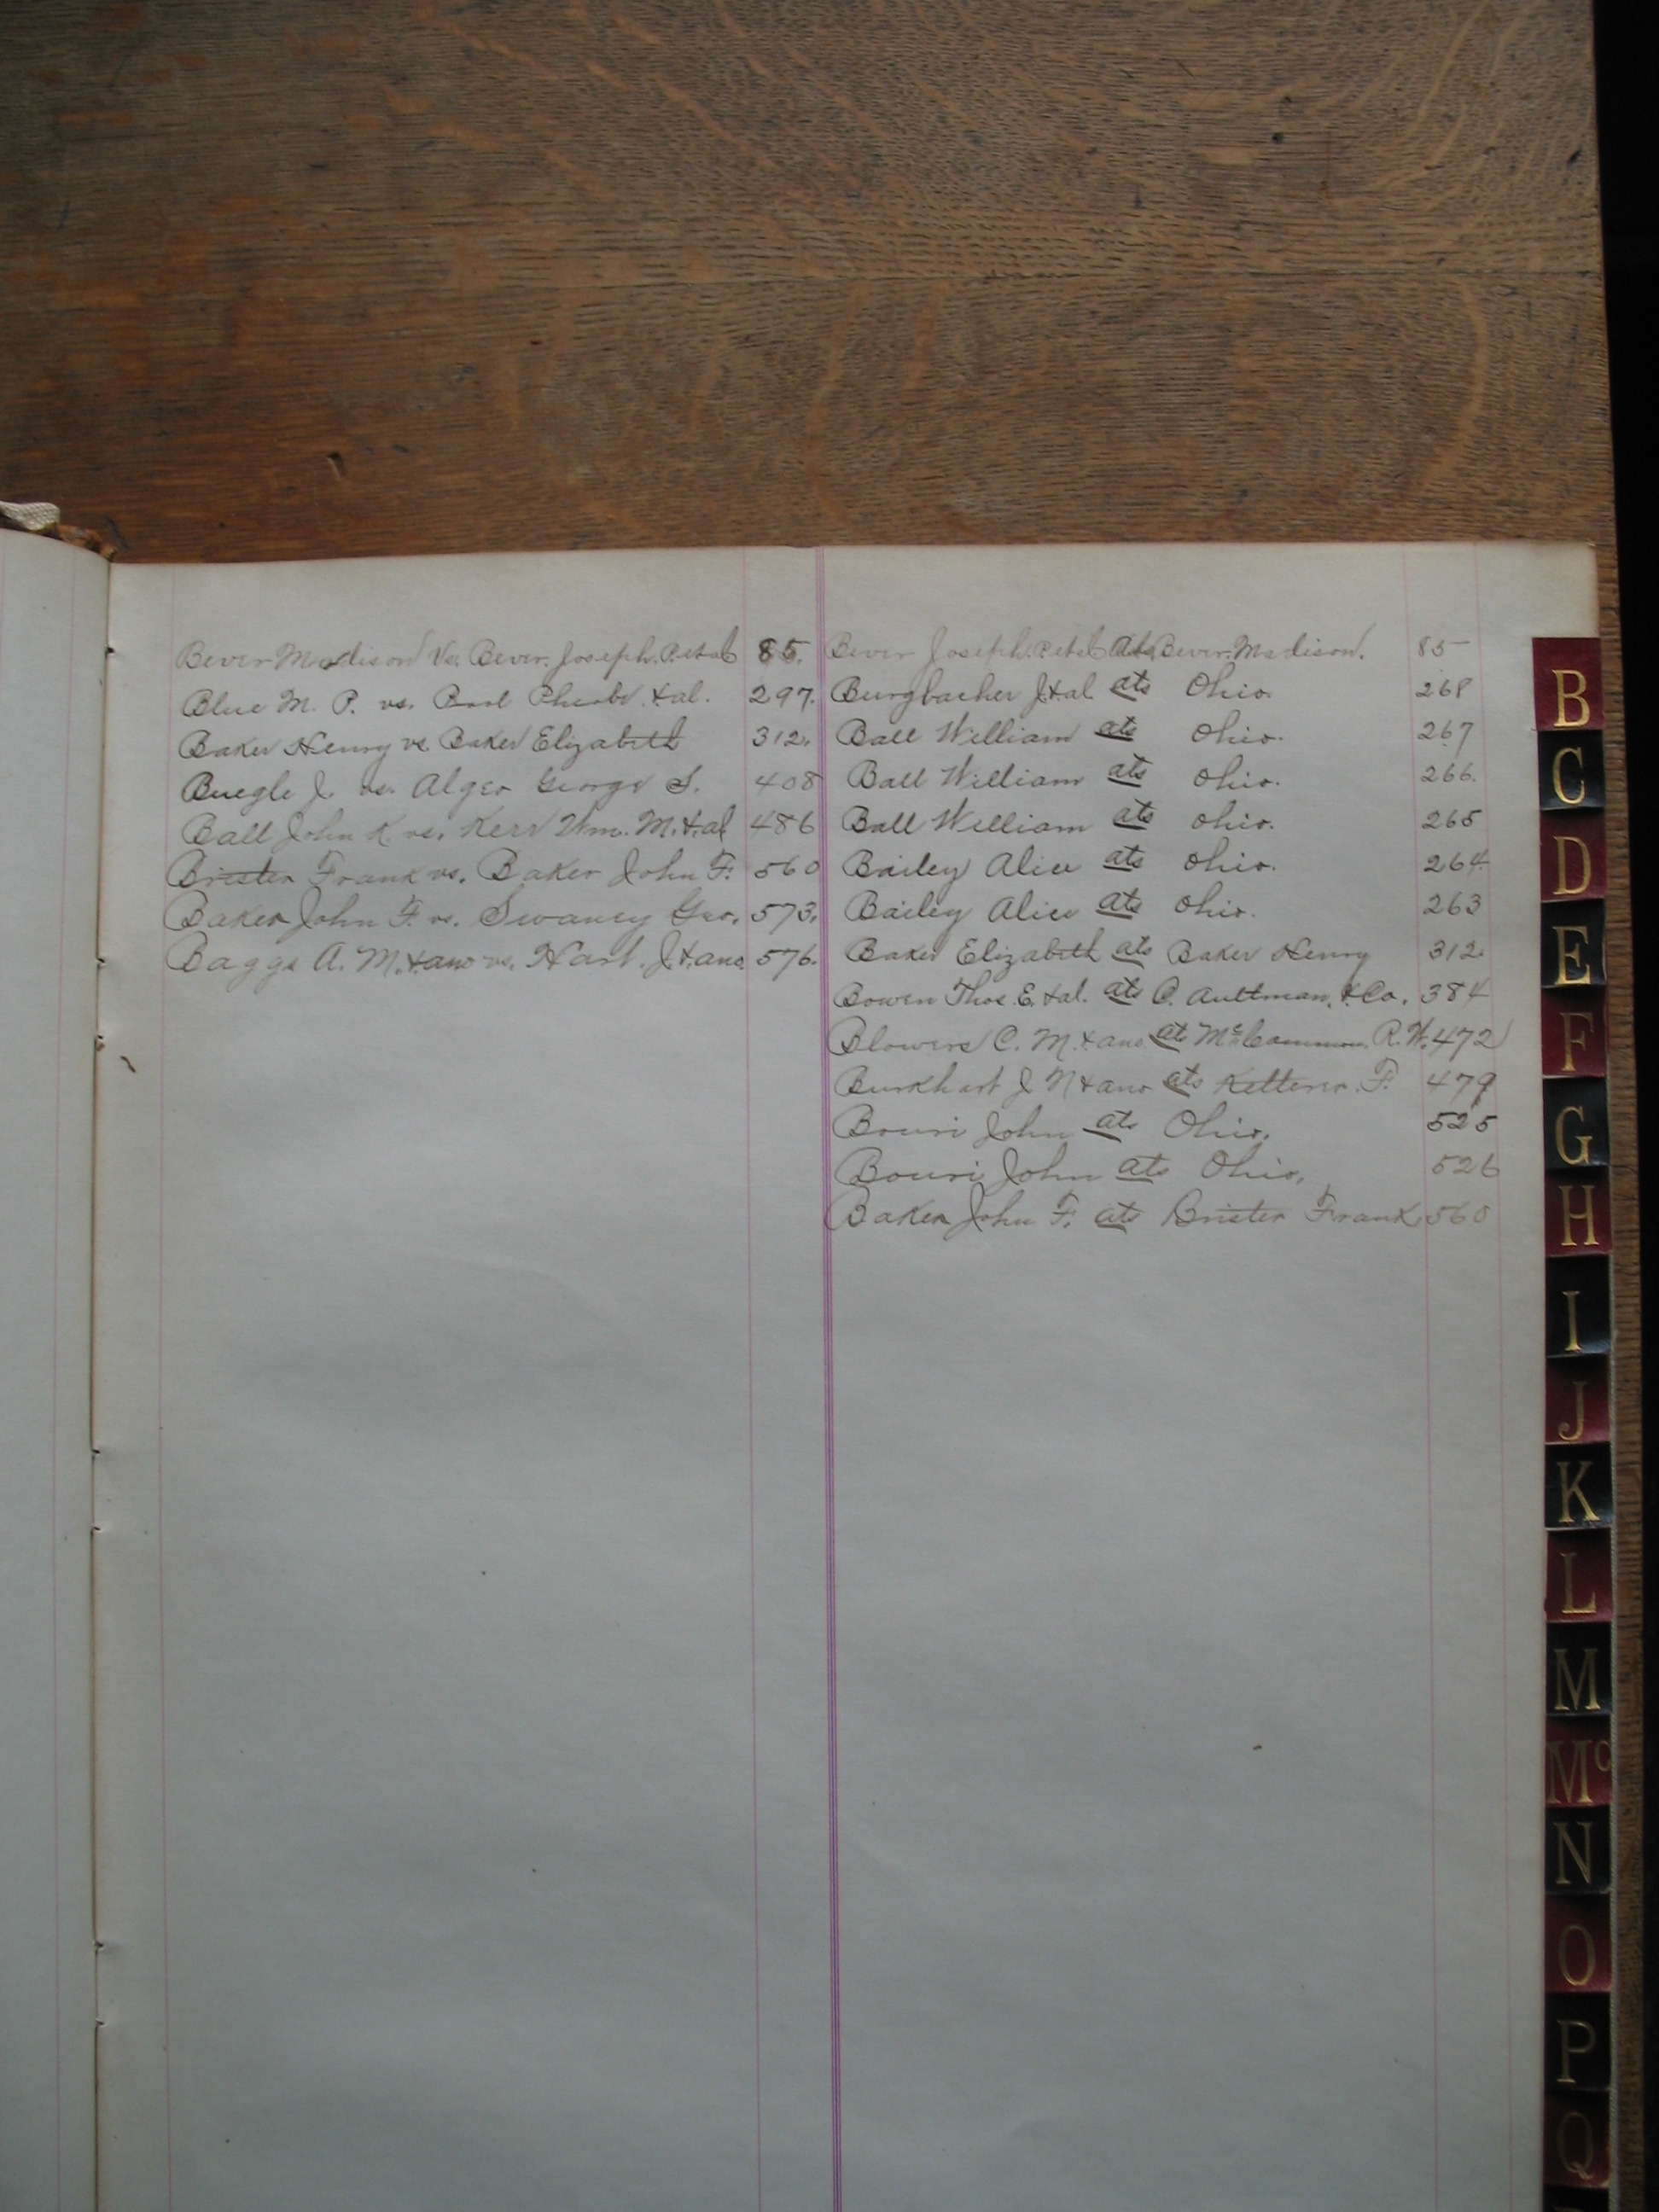 Bever Madison Vs. Bever. Joseph. P. et al 85.
Blue M. P. vs. Phoebe &al. 297.
Baker Henry vs Baker Elizabeth 312.
Buegle J. vs. Alger George S. 408
Ball John K. vs. Kerr Wm. M. &.al 486
Brister Frank vs. Baker John F. 560
Baker John F. vs. Swaney Geo. 573.
Baggs A. M. &ano vs. Hart. J. &.ano. 576.
Bever Joseph. P. et al Ats Bever. Madison. 85
Burgbacher J. &al ats Ohio. 268
Ball William ats Ohio. 267
Ball William ats Ohio. 266.
Ball William ats Ohio. 265
Bailey Alice ats Ohio. 264.
Bailey Alice ats Ohio. 263
Baker Elizabeth ats Baker Henry 312.
Bowen Thos. E. &al. ats C. Aultman. & Co. 384
Blowers C. M. & ano. ats McCammon. R. W. 472
Burkhart J N & ano ats Ketterer. F. 479
Bouri John ats Ohio. 525
Bouri John ats Ohio. 526
Baker John F. ats Brister Frank 560
B
C
D
E
F
G
H
I
J
K
L
M
Mc
N
O
P
Q